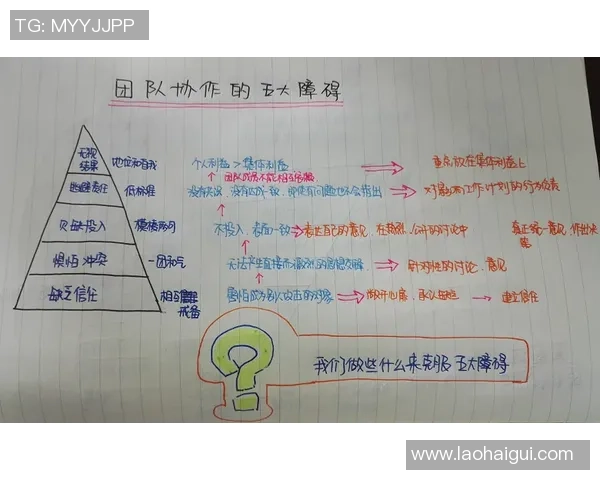 TG: MYYJJPP
团队协作的五大障碍
无视结果 地位和自我 个人利益 > 集体利益 重点放在集体利益上
团队成员不能相互
逃避责任 低标准 没有失误、没有 对 工作计划的 负责
欠缺投入 模棱两可 不投入、表面一致 表达自己的意见、在 公开的讨论中 真正统一意见、作出决策
惧怕冲突 一团和气 无法产生直接而激烈的思想交锋 针对性的讨论、意见
缺乏信任 相互 戒备 害怕成为别人攻击的对象 敞开心扉、承认 建立信任
我们做些什么来克服五大障碍
www.laohaigui.com